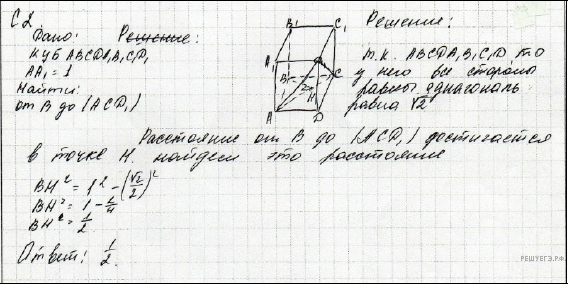 C2
Дано: Решение:
КУБ ABCDA₁B₁C₁D₁
AA₁ = 1
Найти:
от B до (ACD₁)
B₁ C₁
A₁
B C
H
A D
Решение:
т.к. ABCDA₁B₁C₁D₁ то
у него все стороны
равны. диагональ
равна √2
Расстояние от B до (ACD₁) достигается
в точке H. найдем это расстояние
BH² = 1² - (√2/2)²
BH² = 1 - 2/4
BH² = 1/2
Ответ: 1/2.
РЕШУЕГЭ.РФ